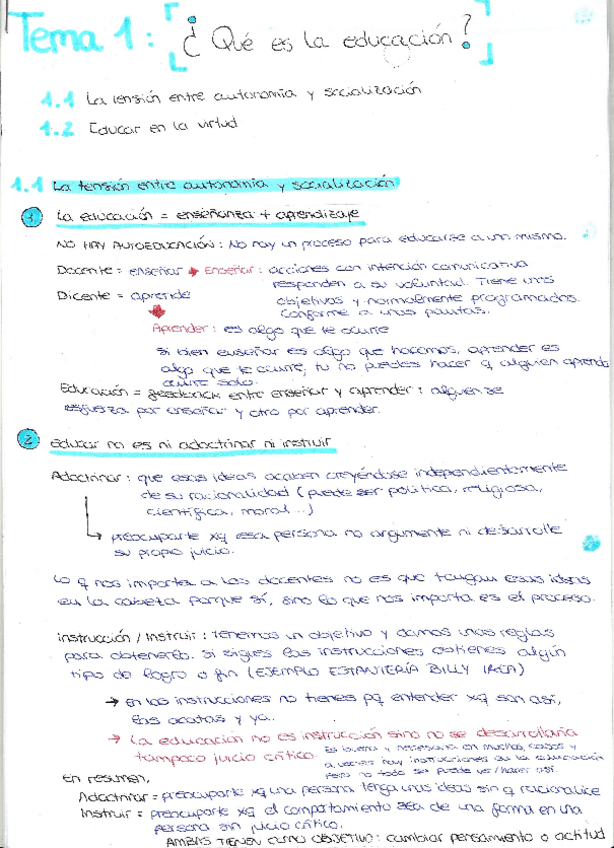 Tema 1: ¿Qué es la educación?
1.1 La tensión entre autonomía y socialización
1.2 Educar en la virtud
1.1 La tensión entre autonomía y socialización
1 La educación = enseñanza + aprendizaje
NO HAY AUTOEDUCACIÓN: No hay un proceso para educarse a un mismo.
Docente = enseñar → Enseñar: acciones con intención comunicativa
responden a su voluntad. Tiene unos
Dicente = aprende objetivos y normalmente programados.
Conforme a unas pautas.
Aprender: es algo que te ocurre
Si bien enseñar es algo que hacemos, aprender es
algo que te ocurre, tu no puedes hacer q alguien aprenda
ocurre solo.
Educación = feedback entre enseñar y aprender: alguien se
esfuerza por enseñar y otro por aprender.
2 Educar no es ni adoctrinar ni instruir
Adoctrinar: que esas ideas acaben creyéndose independientemente
de su racionalidad (puede ser política, religiosa,
científica, moral...)
→ preocuparte xq esa persona no argumente ni desarrolle
su propio juicio.
Lo q nos importa a los docentes no es que tengan esas ideas
en la cabeza porque sí, sino lo que nos importa es el proceso.
instrucción / Instruir: tenemos un objetivo y damos unas reglas
para obtenerlo. Si sigues las instrucciones obtienes algún
tipo de logro o fin (EJEMPLO ESTANTERÍA BILLY IKEA)
→ en las instrucciones no tienes pq entender xq son así,
las acatas y ya.
→ La educación no es instrucción sino no se desarrollaría
tampoco juicio crítico. Es buena y necesaria en muchos casos y
a veces hay instrucciones en la educación
pero no todo se puede ver/hacer así.
En resumen,
Adoctrinar = preocuparte xq una persona tenga unas ideas sin q racionalice
Instruir = preocuparte xq el comportamiento sea de una forma en una
persona sin juicio crítico.
AMBAS TIENEN COMO OBJETIVO: cambiar pensamiento o actitud